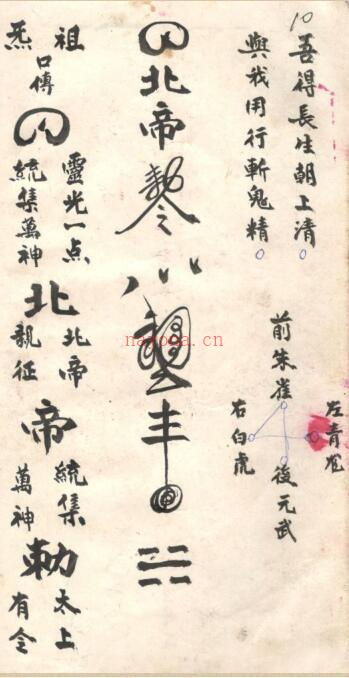 10
吾得長生朝上清。
與我用行斬鬼精。
前朱雀
左青龙
右白虎
後元武
北帝
祖炁
口傳
靈光一点
統集萬神
北
北帝
親征
帝
統集
萬神
勅
太上
有令